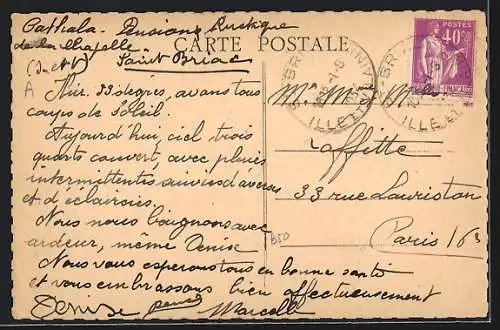 Cathala - Pension Rustique
de la Chapelle
CARTE POSTALE
(I. et V.) Saint Briac
POSTES
40c
Hier 33 degrés, avant tous
coups de soleil.
Aujourd'hui, ciel trois
quarts couvert, avec pluies
intermittentes suivies d'averses
et d'éclaircies.
Nous nous baignons avec
ardeur, même Denise
Nous vous espérons tous en bonne santé
et vous embrassons bien affectueusement
Denise Marcelle
ILLE ET
ILLE ET
Laffitte
33 rue Lauriston
Paris 16e
B50